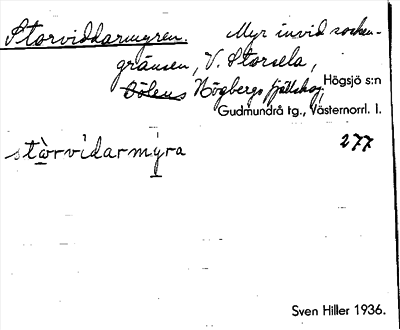 Storviddarmyren. Myr invid socken-
gränsen, V. Storsela,
Bölens Högbergs fjällskog. Högsjö s:n
Gudmundrå tg., Västernorrl. l.
stòrvìdarmyra 277
Sven Hiller 1936.